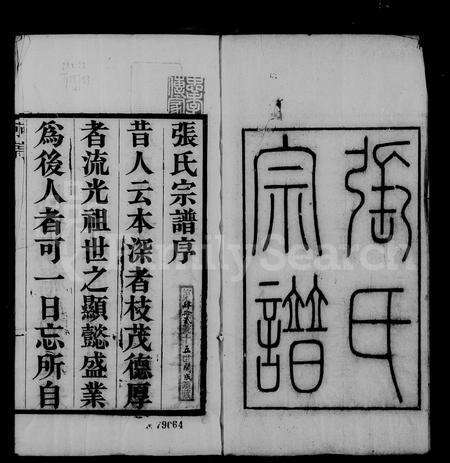 張氏
宗譜
張氏宗譜序
昔人云本深者枝茂德厚
者流光祖世之顯懿盛業
爲後人者可一日忘所自
79664
FamilySearch